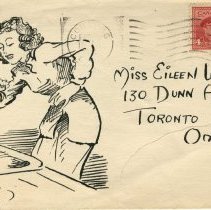 Miss Eileen W
130 Dunn A
Toronto
On
4